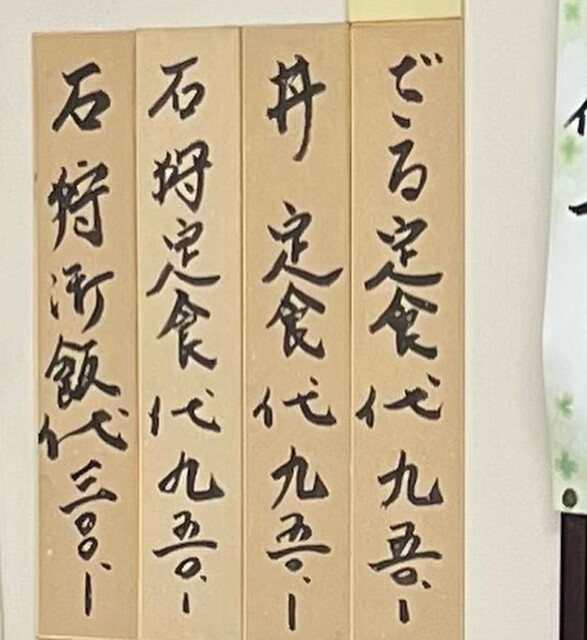 ざる定食代九五〇.-
丼定食代九五〇.-
石狩定食代九五〇.-
石狩御飯代三〇〇.-